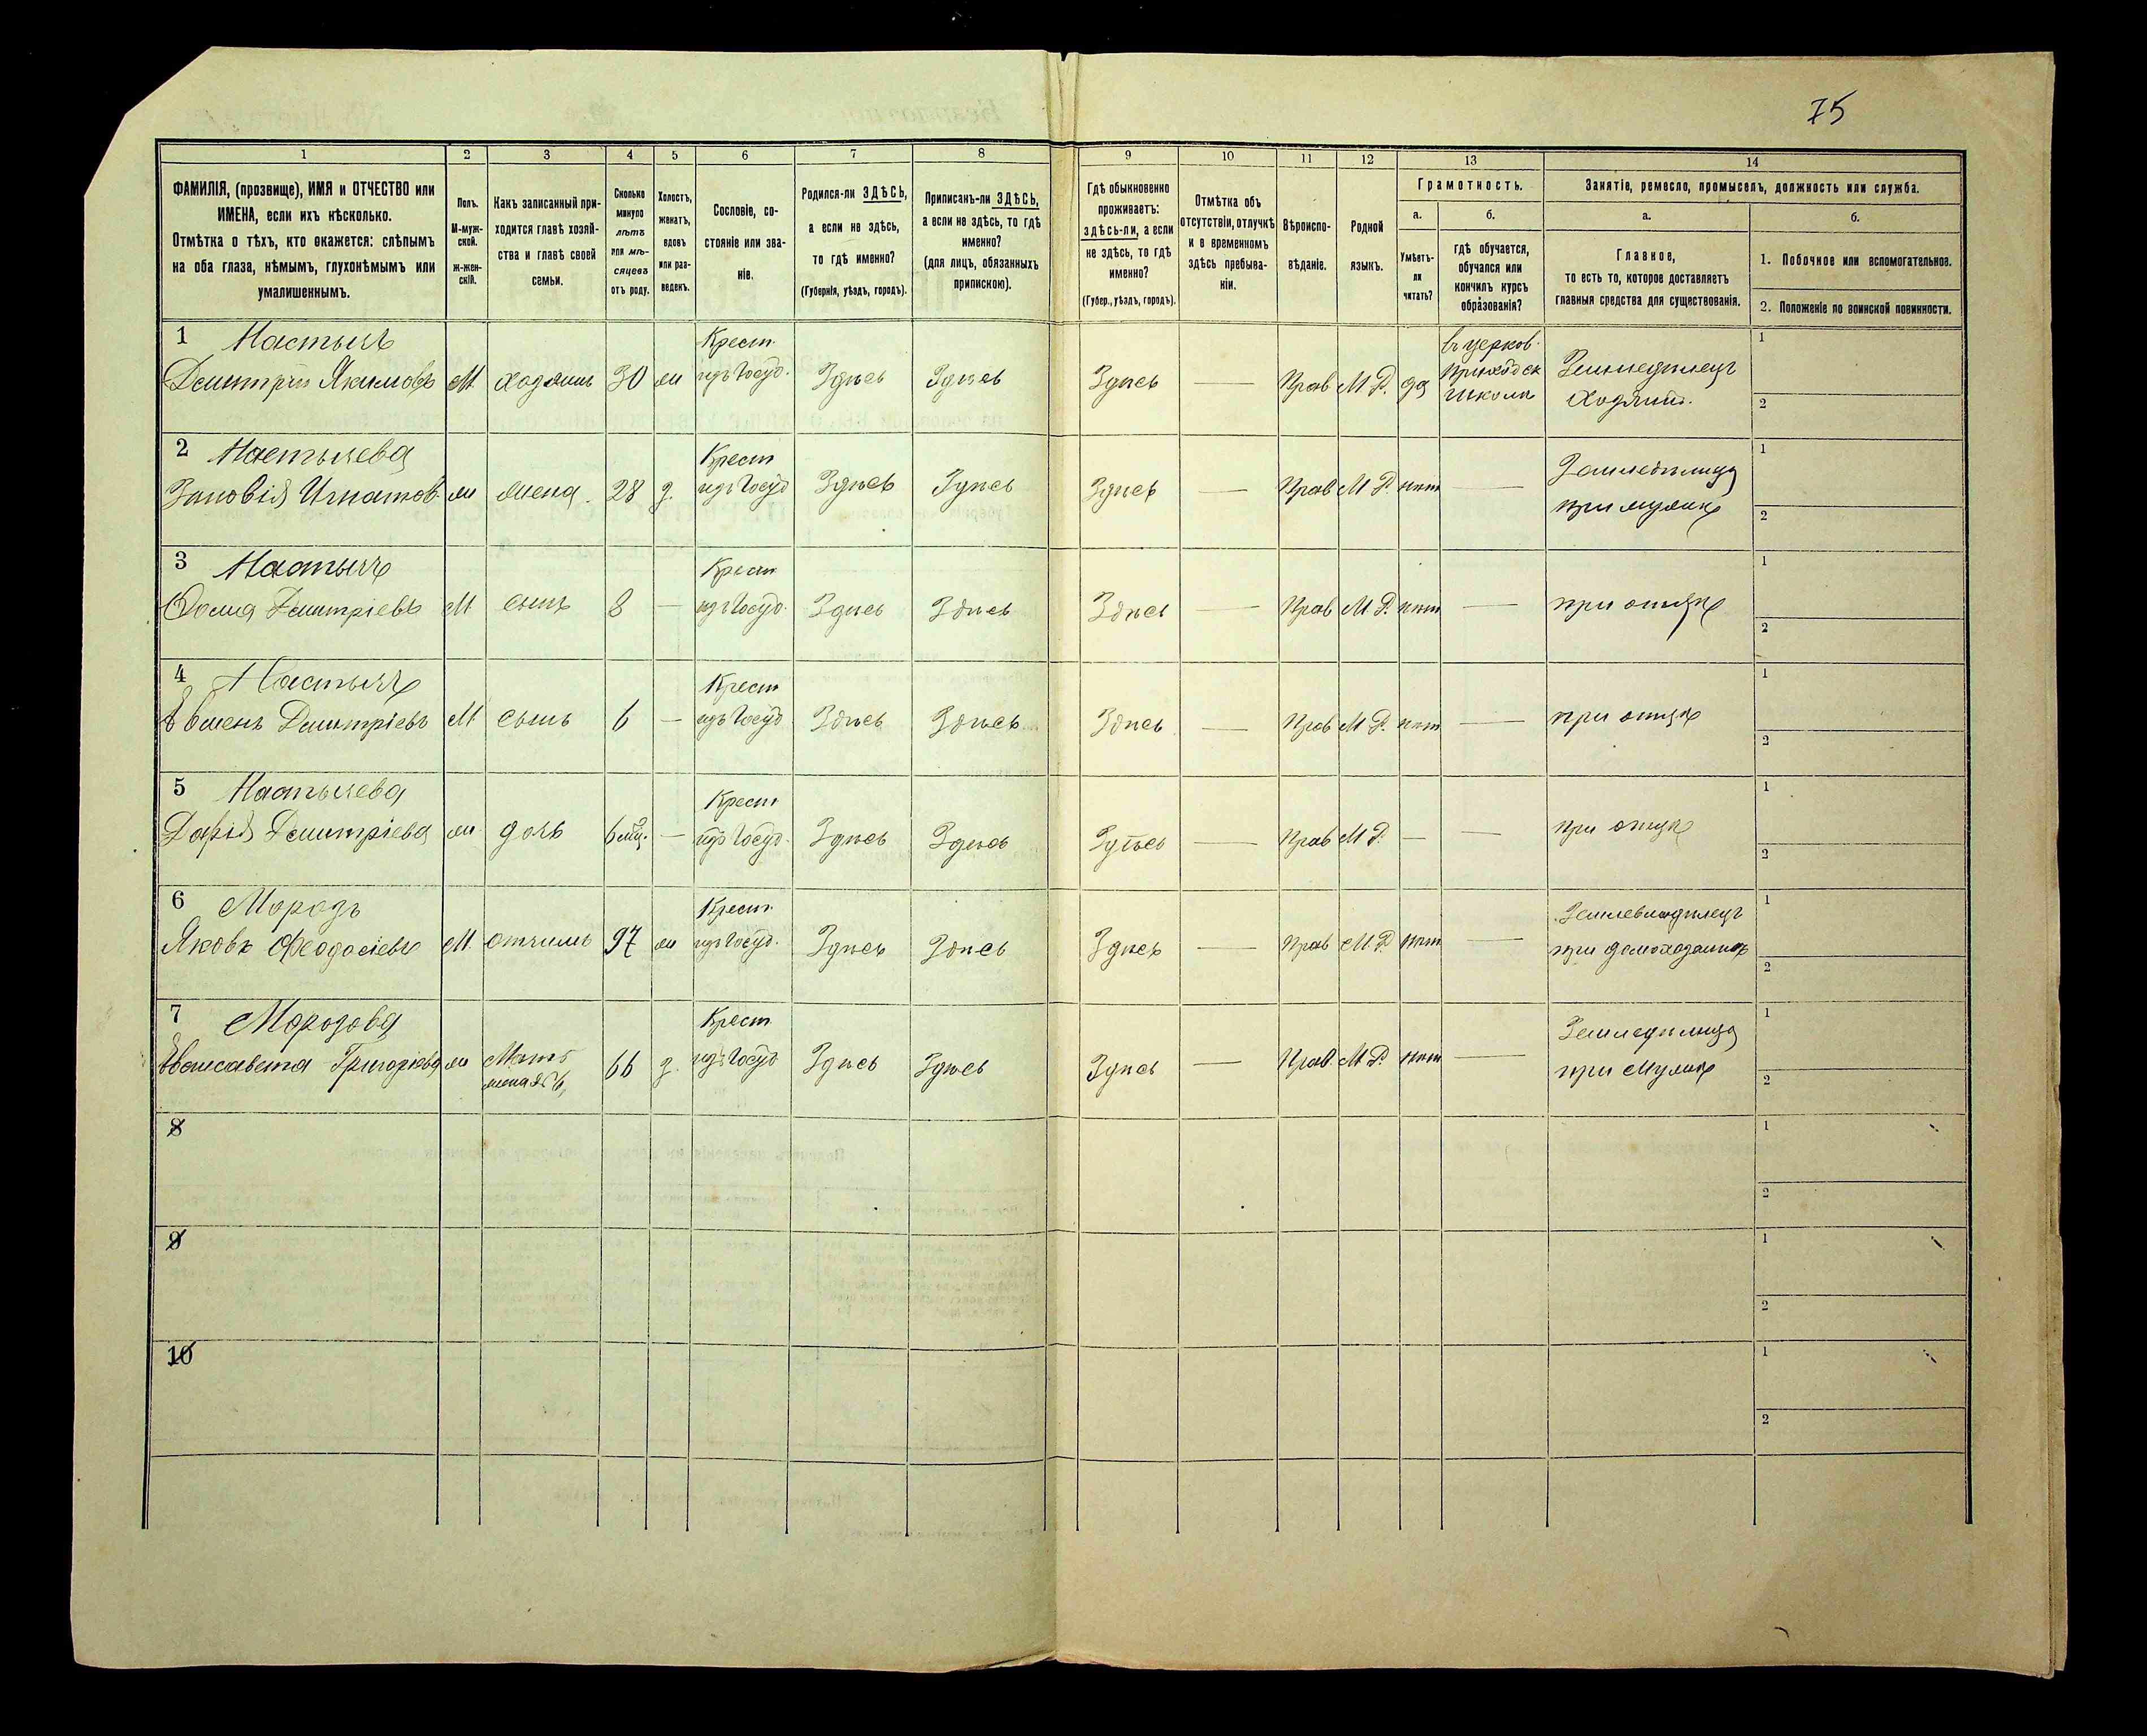 75
1 2 3 4 5 6 7 8 9 10 11 12 13 14
ФАМИЛІЯ, (прозвище), ИМЯ и ОТЧЕСТВО или
ИМЕНА, если ихъ нѣсколько.
Отмѣтка о тѣхъ, кто окажется: слѣпымъ
на оба глаза, нѣмымъ, глухонѣмымъ или
умалишеннымъ.
Полъ.
М-муж-
ской.
ж-жен-
скій.
Какъ записанный при-
ходится главѣ хозяй-
ства и главѣ своей
семьи.
Сколько
минуло
лѣтъ
или мѣ-
сяцевъ
отъ роду.
Холостъ,
женатъ,
вдовъ
или раз-
веденъ.
Сословіе, со-
стояніе или зва-
ніе.
Родился-ли ЗДѢСЬ,
а если не здѣсь,
то гдѣ именно?
(Губернія, уѣздъ, городъ).
Приписанъ-ли ЗДѢСЬ,
а если не здѣсь, то гдѣ
именно?
(для лицъ, обязанныхъ
припискою).
Гдѣ обыкновенно
проживаетъ:
здѣсь-ли, а если
не здѣсь, то гдѣ
именно?
(Губер., уѣздъ, городъ).
Отмѣтка объ
отсутствіи, отлучкѣ
и о временномъ
здѣсь пребыва-
ніи.
Вѣроиспо-
вѣданіе.
Родной
языкъ.
Грамотность.
а.
Умѣетъ-
ли
читать?
б.
гдѣ обучается,
обучался или
кончилъ курсъ
образованія?
Занятіе, ремесло, промыселъ, должность или служба.
а.
Главное,
то есть то, которое доставляетъ
главныя средства для существованія.
б.
1. Побочное или вспомогательное.
2. Положеніе по воинской повинности.
1 Настычъ Крест. въ церков. 1
Дмитрій Якимовъ М хозяинъ 30 ж изъ Госуд. Здѣсь Здѣсь Здѣсь — Прав М. Р. да приходск школѣ Земледѣлецъ хозяинъ. 2
2 Настычева Крест 1
Зиновія Игнатов ж жена 28 з. изъ Госуд Здѣсь Здѣсь Здѣсь — Прав М. Р. нѣт — Земледѣлица при мужѣ 2
3 Настычъ Крест 1
Фома Дмитріевъ М сынъ 8 — изъ Госуд. Здѣсь Здѣсь Здѣсь — Прав М. Р. нѣт — при отцѣ 2
4 Настычъ Крест 1
Дмитріевъ М сынъ 6 — изъ Госуд Здѣсь Здѣсь Здѣсь — Прав М. Р. нѣт — при отцѣ 2
5 Настычева Крест 1
Дмитріева ж дочь 6 мц. — изъ Госуд. Здѣсь Здѣсь Здѣсь — Прав М. Р. — — при отцѣ 2
6 Морозъ Крест. 1
Яковъ Феодосіевъ М отчимъ 97 ж изъ Госуд. Здѣсь Здѣсь Здѣсь — Прав М. Р. нѣт — при домохозяинѣ 2
7 Морозова Крест 1
Григорьева ж Мать жена 66 з. изъ Госуд Здѣсь Здѣсь Здѣсь — Прав. М. Р. нѣт — Земледѣлица при Мужѣ 2
8 1
2
9 1
2
10 1
2